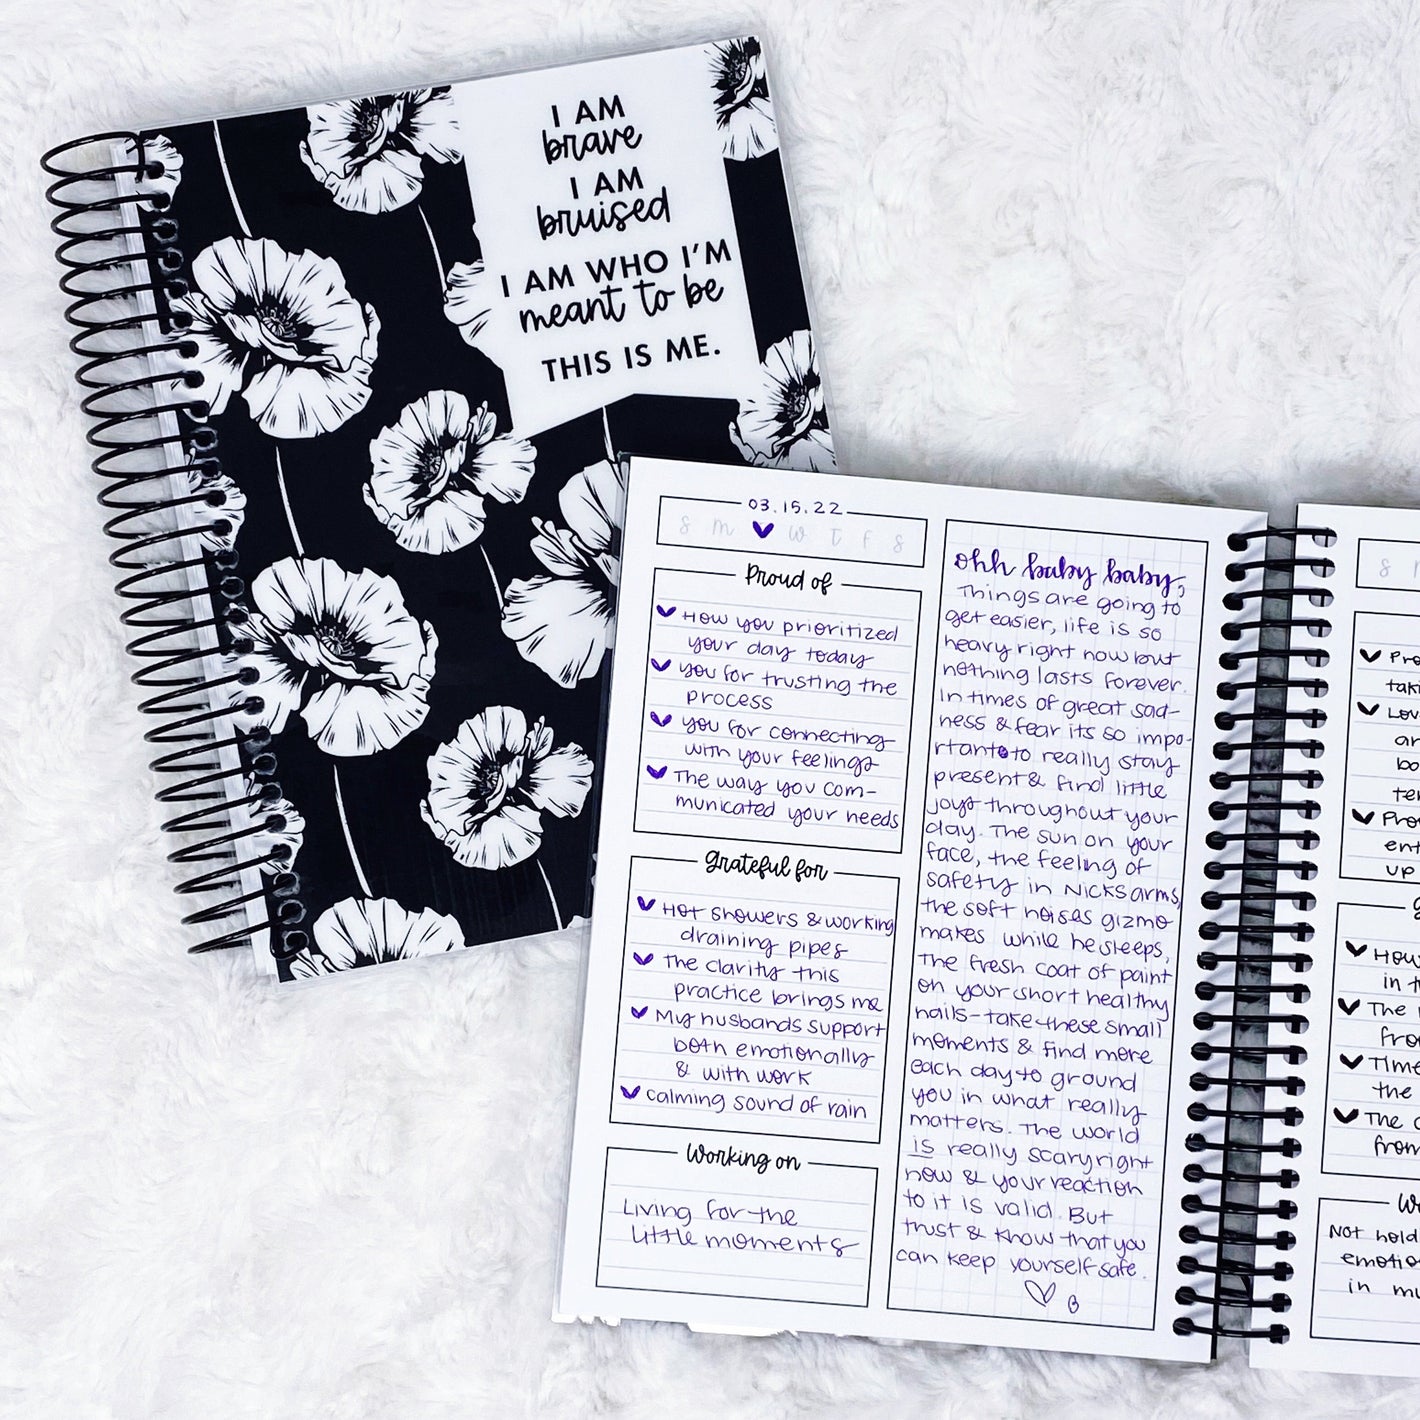 I AM
brave
I AM
bruised
I AM WHO I'M
meant to be
THIS IS ME.
03.15.22
s m w t f s
Proud of
How you prioritized
your day today
you for trusting the
process
you for connecting
with your feelings
The way you com-
municated your needs
Grateful for
Hot showers & working
draining pipes
The clarity this
practice brings me
My husbands support
both emotionally
& with work
calming sound of rain
Working on
Living for the
little moments
ohh baby baby,
Things are going to
get easier, life is so
heavy right now but
nothing lasts forever.
In times of great sad-
ness & fear its so impo-
rtant to really stay
present & find little
joys throughout your
day. The sun on your
face, the feeling of
safety in Nicks arms,
the soft noises gizmo
makes while he sleeps,
the fresh coat of paint
on your short healthy
nails - take these small
moments & find more
each day to ground
you in what really
matters. The world
is really scary right
now & your reaction
to it is valid. But
trust & know that you
can keep yourself safe.
B
s
Pro
taki
Lov
ar
bo
ter
Pro
ent
up
How
in t
The
fro
Time
the
The c
from
W
Not hold
emotio
in mu